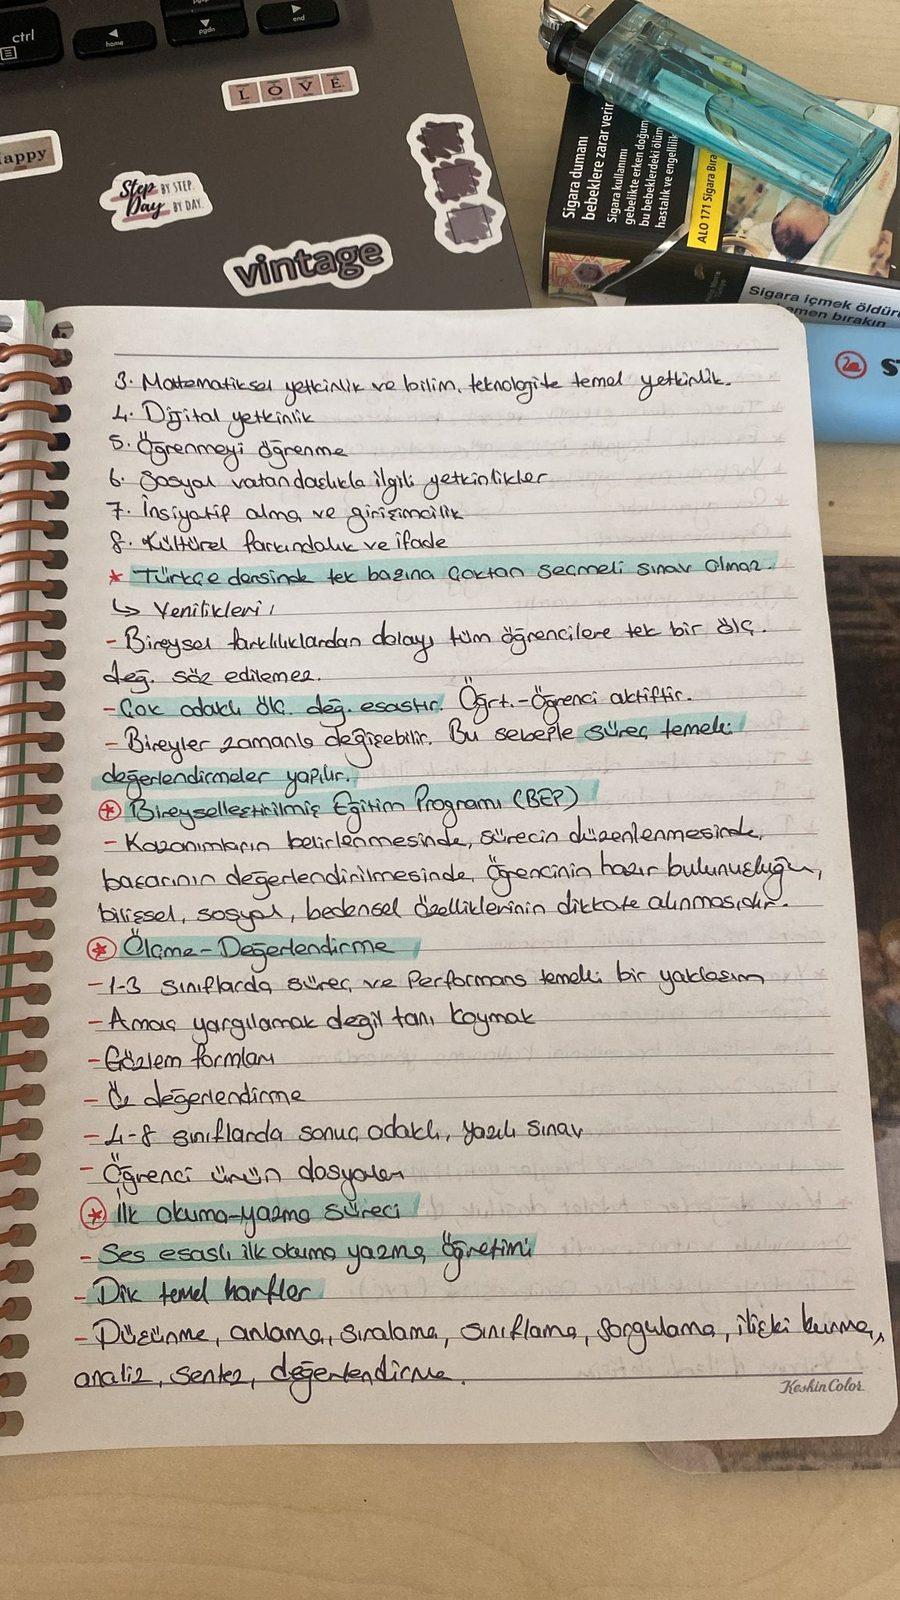 ctrl
home
pgdn
end
LOVE
happy
Step BY STEP.
Day BY DAY.
vintage
Sigara dumanı
bebeklere zarar verir
Sigara kullanımı
gebelikte erken doğum
bu bebeklerdeki ölüm
hastalık ve engellilik
ALO 171 Sigara Bıra
Sigara içmek öldürü
amen bırakın
ST
3. Matematiksel yetkinlik ve bilim, teknolojite temel yetkinlik.
4. Dijital yetkinlik
5. Öğrenmeyi öğrenme
6. Sosyal vatandaşlıkla ilgili yetkinlikler
7. İnsiyatif alma ve girişimcilik
8. Kültürel farkındalık ve ifade
* Türkçe dersinde tek başına çoktan seçmeli sınav olmaz.
↳ Yenilikleri;
- Bireysel farklılıklardan dolayı tüm öğrencilere tek bir ölç.
değ. söz edilemez.
- Çok odaklı ölç. değ. esastır. Öğrt.-Öğrenci aktiftir.
- Bireyler zamanla değişebilir. Bu sebeple süreç temelli
değerlendirmeler yapılır.
* Bireyselleştirilmiş Eğitim Programı (BEP)
- Kazanımların belirlenmesinde, sürecin düzenlenmesinde,
başarının değerlendirilmesinde, öğrencinin hazır bulunuşluğu,
bilişsel, sosyal, bedensel özelliklerinin dikkate alınmasıdır.
* Ölçme-Değerlendirme
- 1-3 sınıflarda süreç ve Performans temelli bir yaklaşım
- Amaç yargılamak değil tanı koymak
- Gözlem formları
- Öz değerlendirme
- 4-8 sınıflarda sonuç odaklı, yazılı sınav
- Öğrenci ürün dosyaları
* İlk okuma-yazma süreci
- Ses esaslı ilk okuma yazma öğretimi
- Dik temel harfler
- Düşünme, anlama, sıralama, sınıflama, sorgulama, ilişki kurma,
analiz, sentez, değerlendirme.
KeskinColor